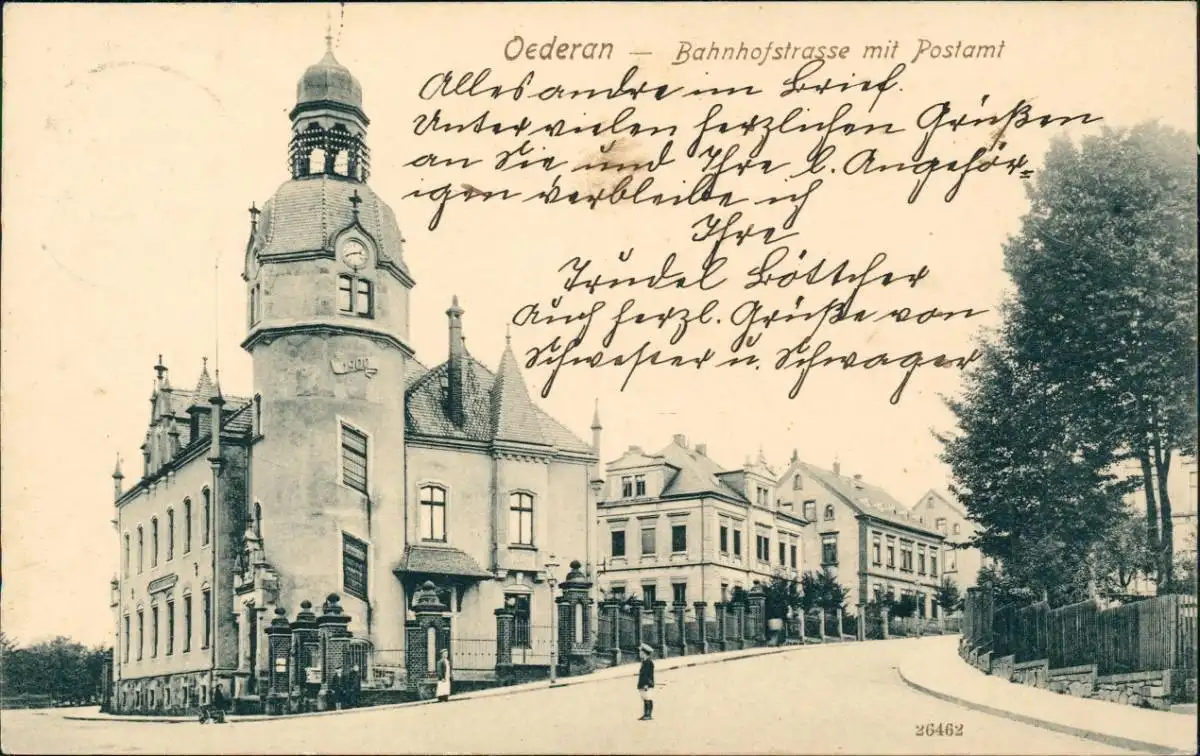 Oederan — Bahnhofstrasse mit Postamt
Alles andre im Brief.
Unter vielen herzlichen Grüßen
an Sie und Ihre l. Angehör-
igen verbleibe ich
Ihre
Trudel Böttcher
Auch herzl. Grüße von
Schwester u. Schwager
1902
26462